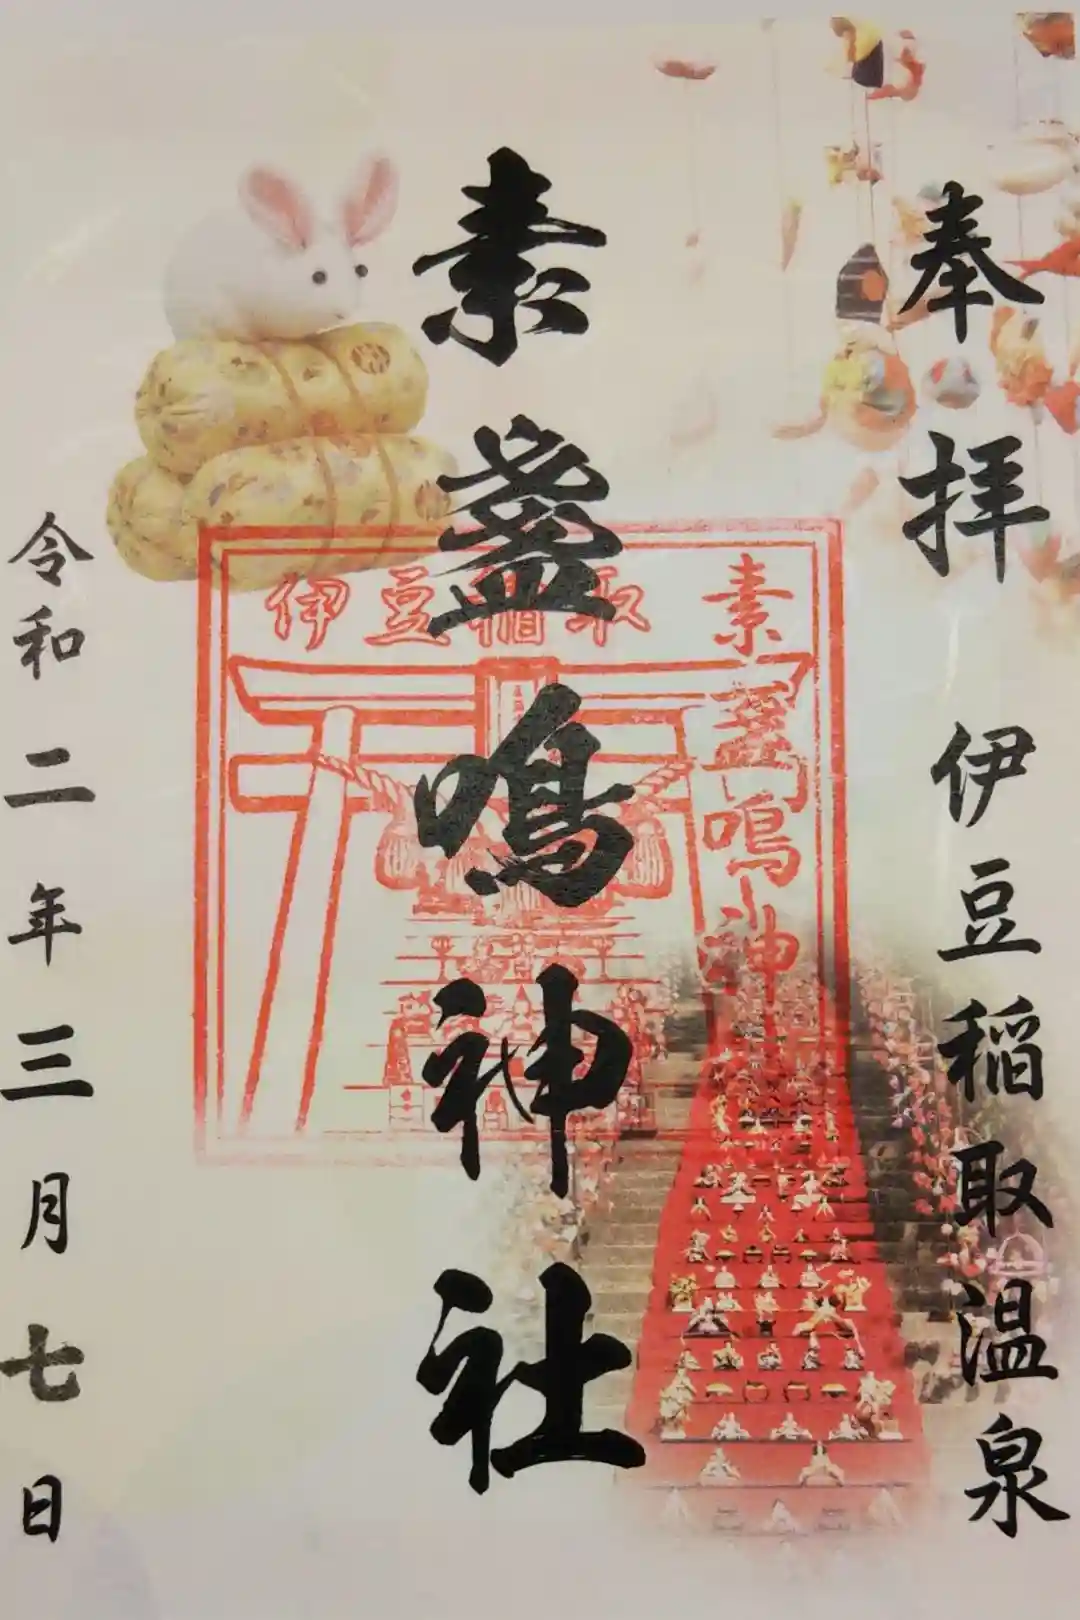 奉拝 伊豆稲取温泉
素盞鳴神社
令和二年三月七日
伊豆稲取
素盞鳴神